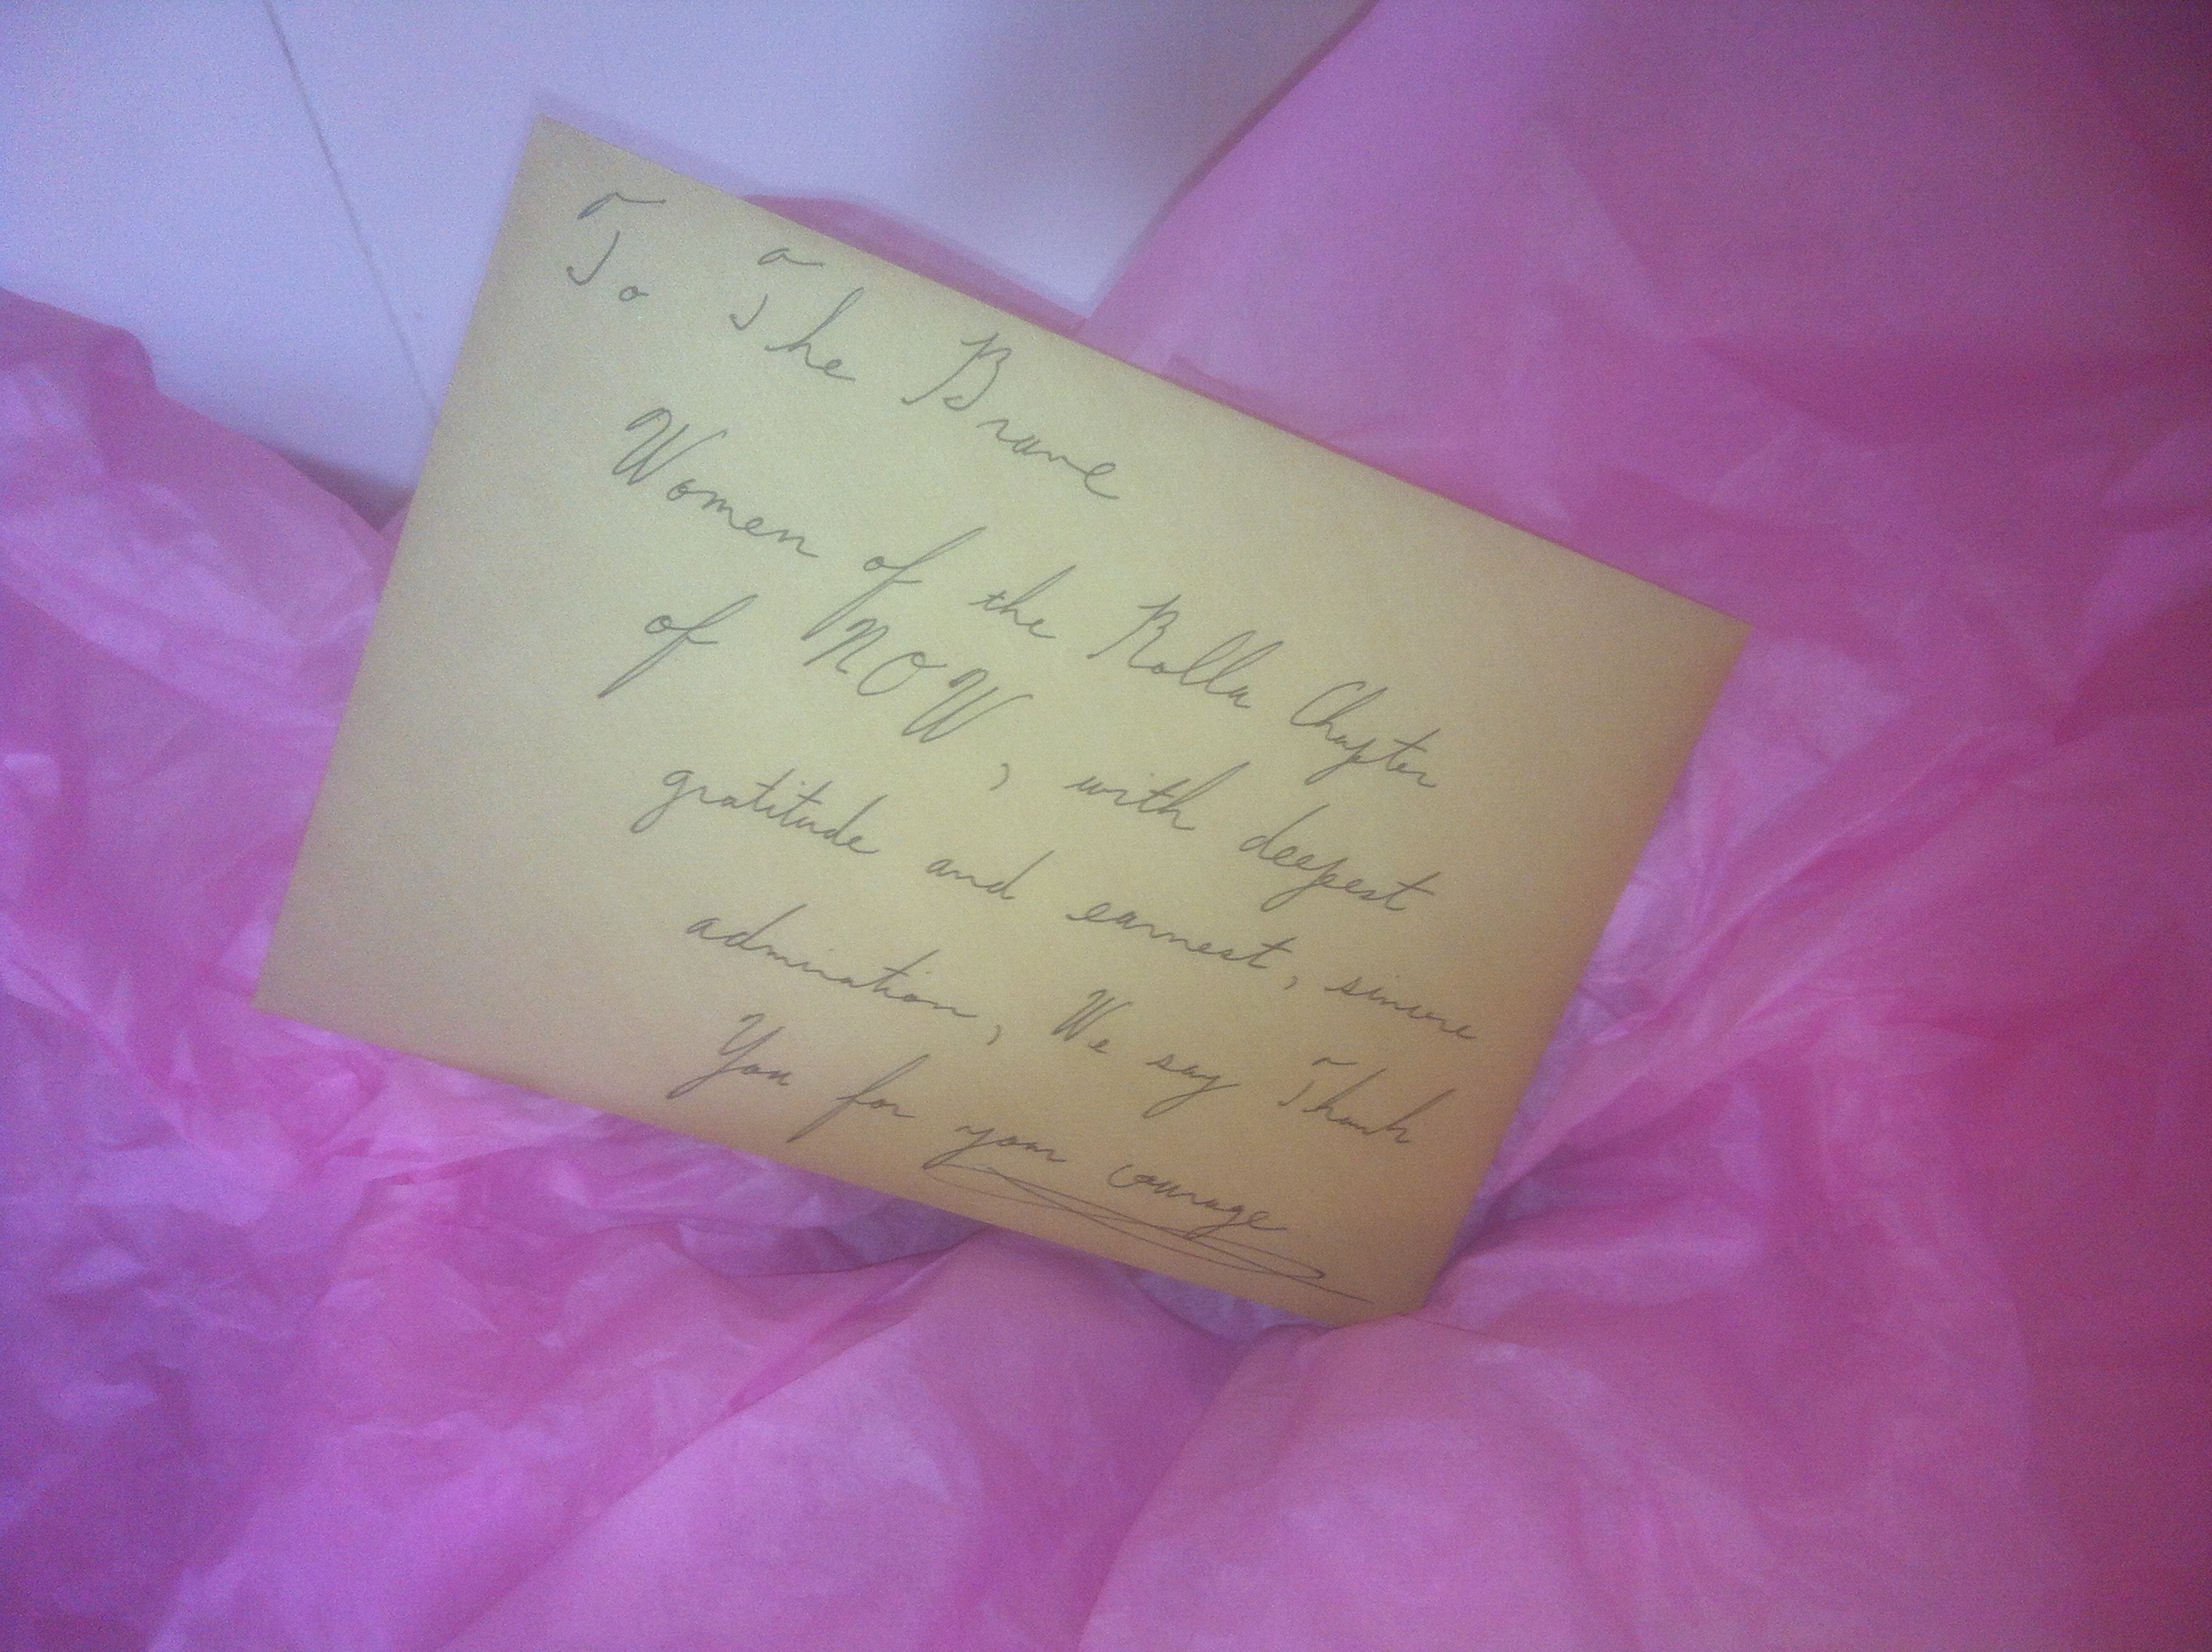 To The Brave
Women of the Rolla Chapter
of NOW, with deepest
gratitude and earnest, sincere
admiration, We say Thank
You for your courage